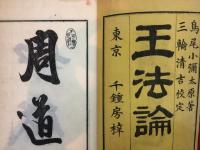 鳥尾小彌太原著
三輪清吉校定
王法論
東京 千鍾房梓
周道